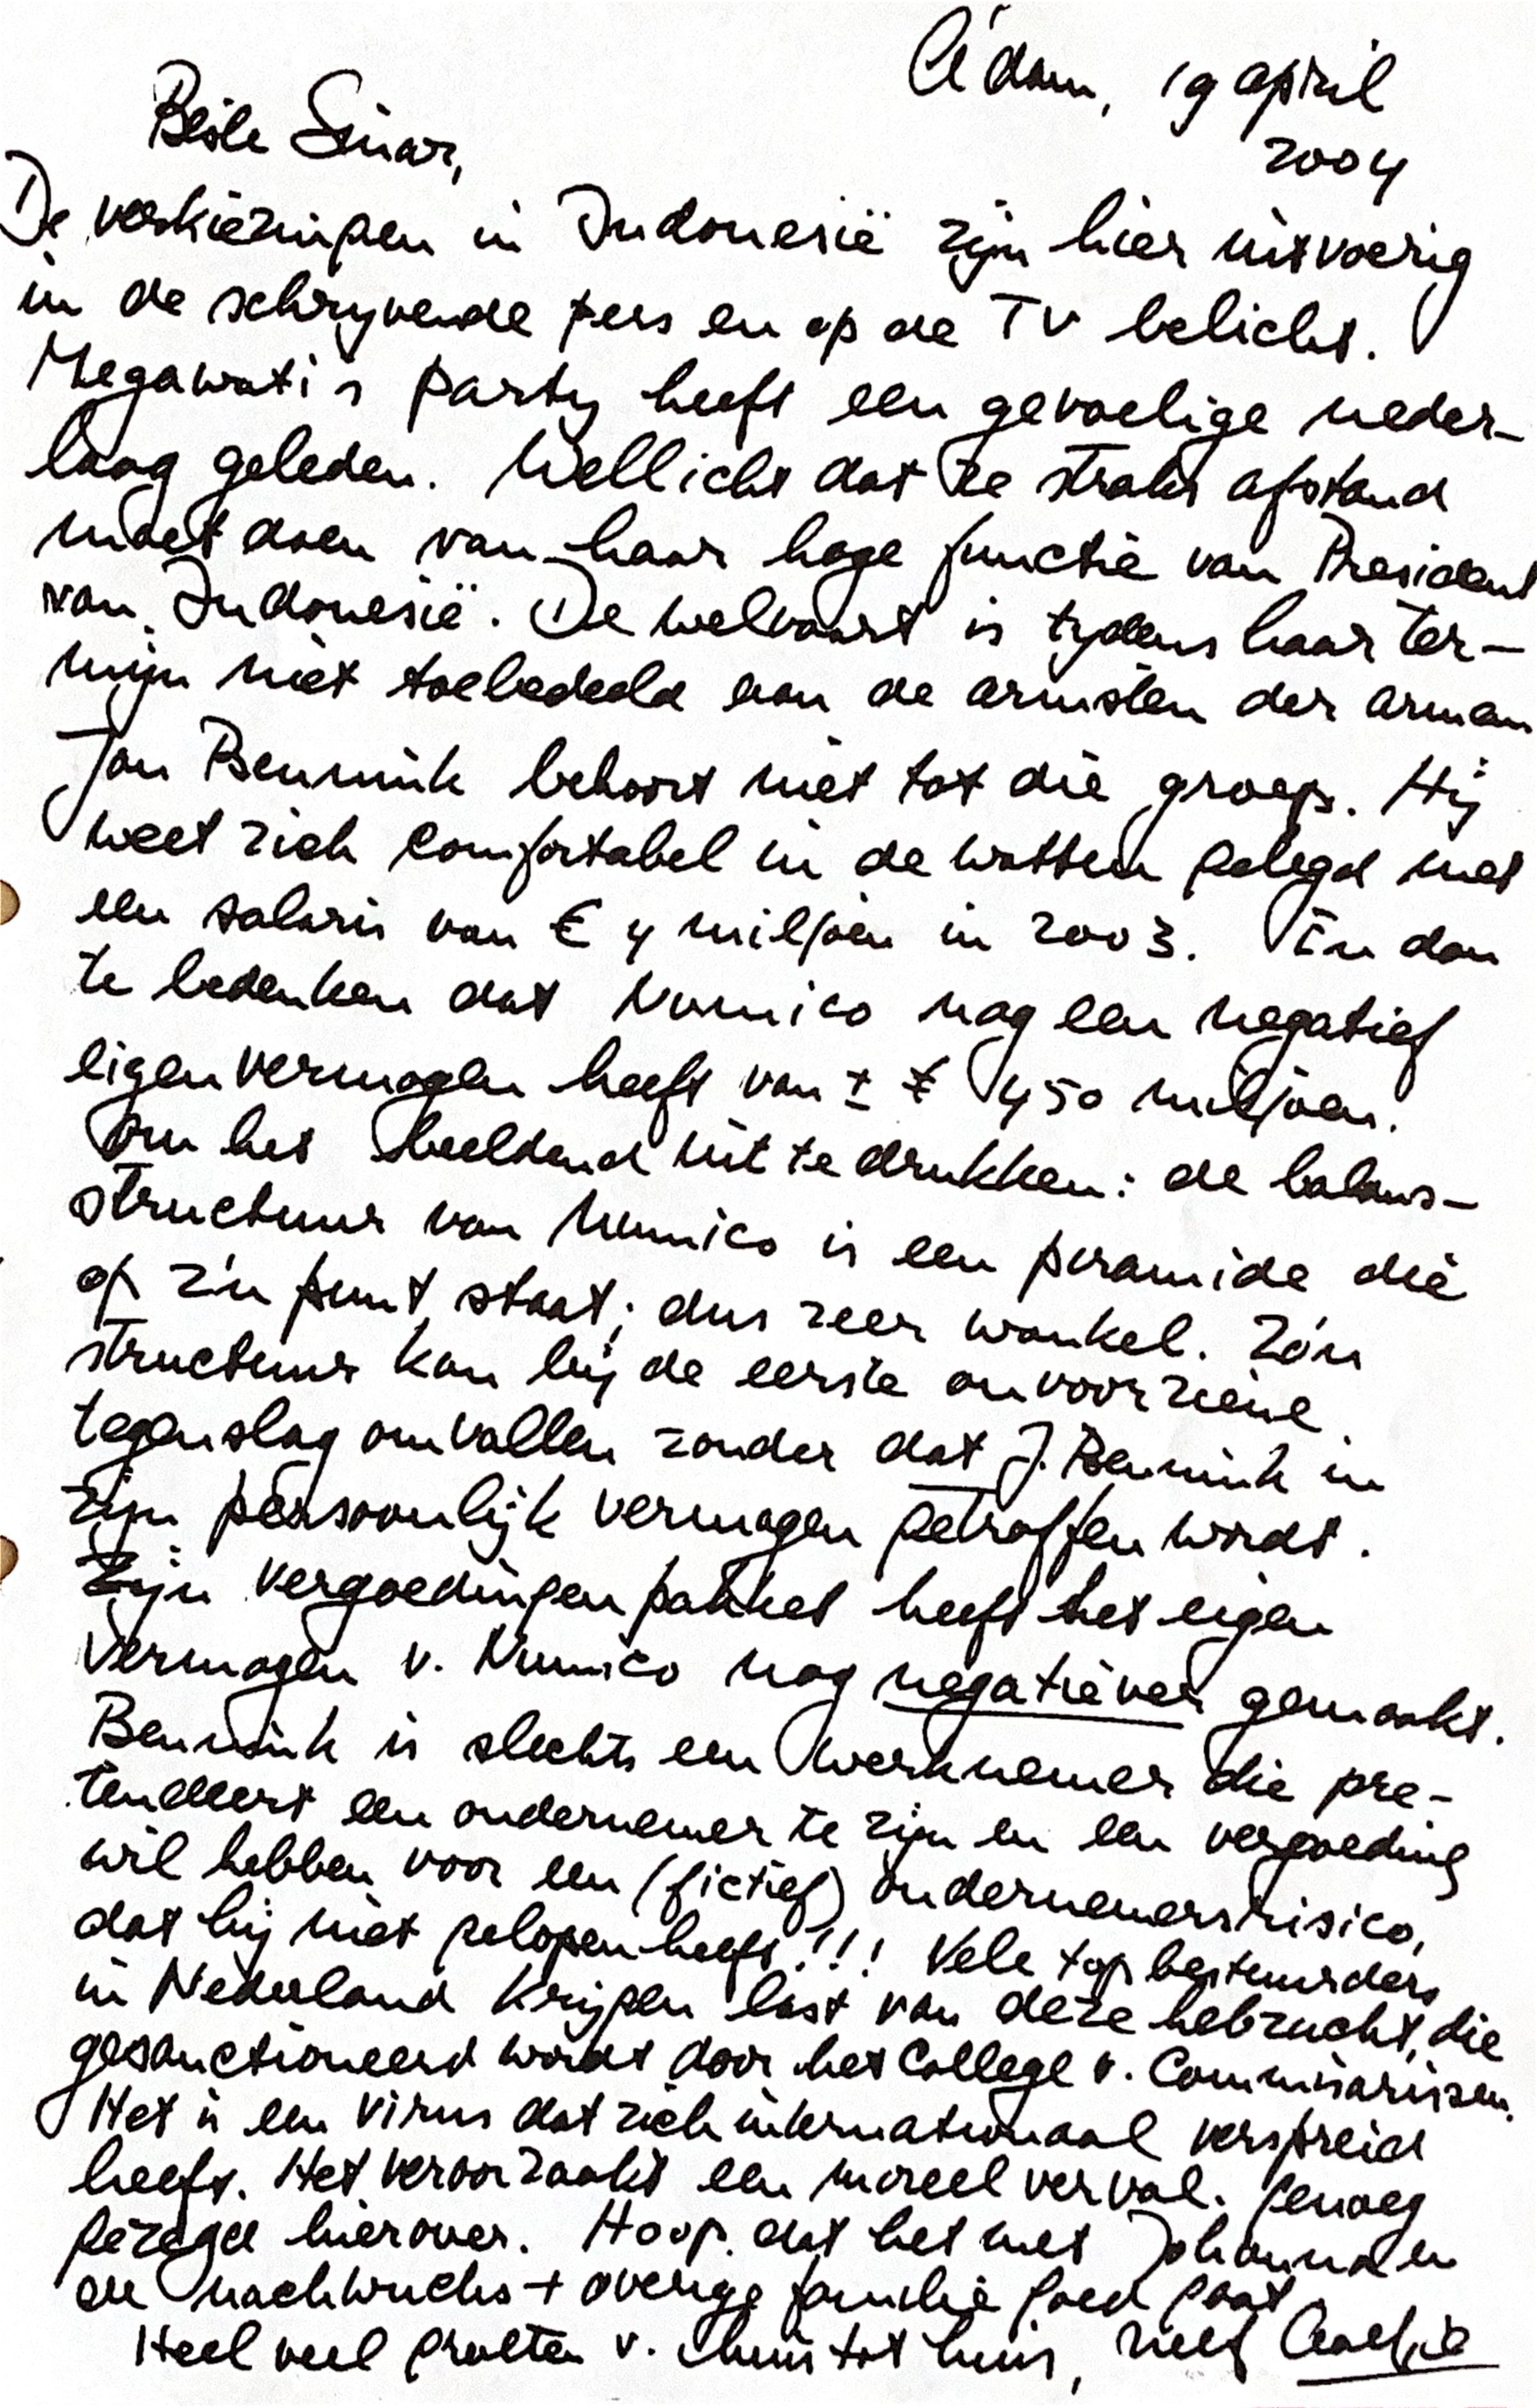 A'dam, 19 april
2004
Beste Sinar,
De verkiezingen in Indonesië zijn hier uitvoerig
in de schrijvende pers en op de TV belicht.
Megawati's party heeft een gevoelige neder-
laag geleden. Wellicht dat ze straks afstand
moet doen van haar hoge functie van President
van Indonesië. De welvaart is tijdens haar ter-
mijn niet toebedeeld aan de armsten der armen
Jan Bennink behoort niet tot die groep. Hij
weet zich comfortabel in de watten gelegd met
een salaris van € 4 miljoen in 2003. En dan
te bedenken dat Numico nog een negatief
eigen vermogen heeft van ± € 450 miljoen.
Om het beeldend uit te drukken: de balans-
structuur van Numico is een piramide die
op z'n punt staat; dus zeer wankel. Zó'n
structuur kan bij de eerste onvoorziene
tegenslag omvallen zonder dat J. Bennink in
zijn persoonlijk vermogen getroffen wordt.
Zijn vergoedingenpakket heeft het eigen
vermogen v. Numico nog negatiever gemaakt.
Bennink is slechts een werknemer die pre-
tendeert een ondernemer te zijn en een vergoeding
wil hebben voor een (fictief) ondernemersrisico,
dat hij niet gelopen heeft!!! Vele topbestuurders
in Nederland krijgen last van deze hebzucht, die
gesanctioneerd wordt door het College v. Commissarissen.
Het is een virus dat zich internationaal verspreid
heeft. Het veroorzaakt een moreel verval. Genoeg
gezegd hierover. Hoop dat het met Johanna en
de nachwuchs + overige familie goed gaat.
Heel veel groeten v. huis tot huis,